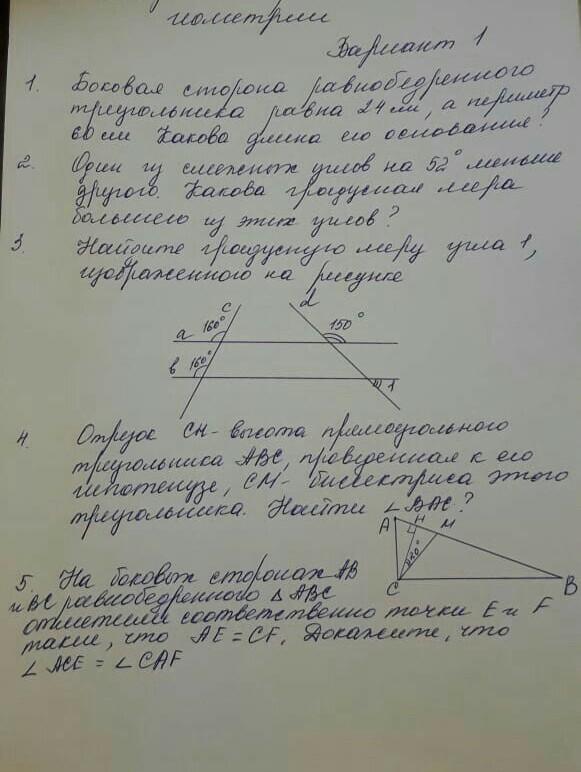 геометрии
Вариант 1
1. Боковая сторона равнобедренного
треугольника равна 24 см, а периметр
60 см Какова длина его основание?
2. Один из смежных углов на 52° меньше
другого. Какова градусная мера
большего из этих углов?
3. Найдите градусную меру угла 1,
изображенного на рисунке
c d
a 160° 150°
b 160° 1
4. Отрезок CH - высота прямоугольного
треугольника ABC, проведенная к его
гипотенузе, CM - биссектриса этого
треугольника. Найти ∠BAC?
A H M
C B
5. На боковых сторонах AB
и BC равнобедренного △ ABC
отметили соответственно точки E и F
такие, что AE = CF. Докажите, что
∠ ACE = ∠ CAF